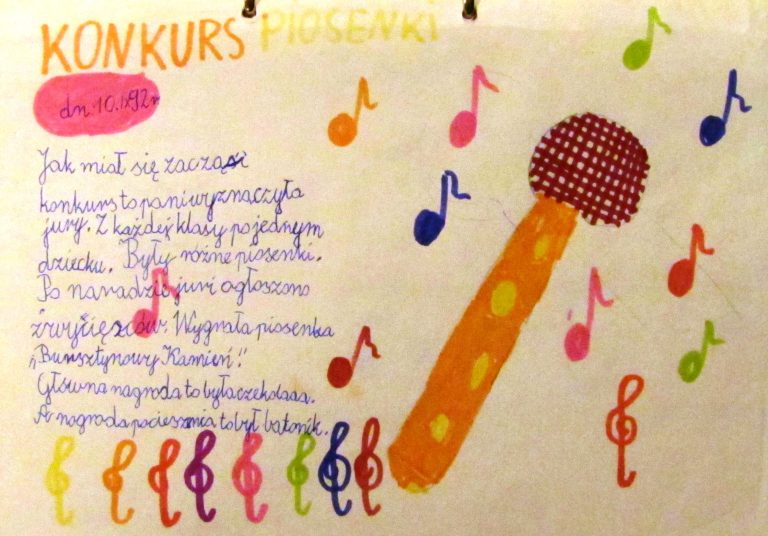 KONKURS PIOSENKI
dn. 10.IX92r
Jak miał się zacząći
konkurs to pani wyznaczyła
jury. Z każdej klasy po jednym
dziecku. Były różne piosenki.
Po naradzie juri ogłoszono
zwycięzców. Wygnała piosenka
„Bursztynowy Kamień!"
Główna nagroda to była czekolaaa.
A nagroda pocieszenia to był batonik.